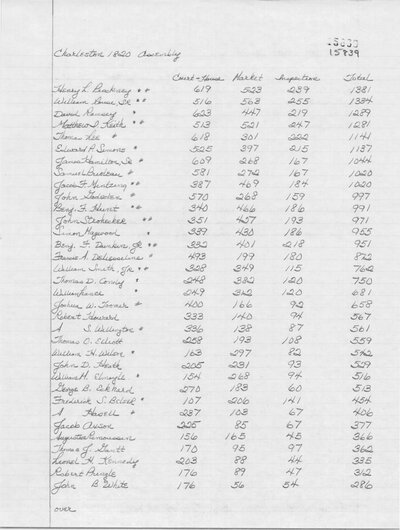 15839
Charleston 1820 Assembly
Court-House Market Inspection Total
Henry L. Pinckney ** 619 523 239 1381
William Jr ** 516 563 255 1334
David Ramsey * 623 447 219 1289
Matthew I. Keith ** 513 521 247 1281
Thomas Lee * 618 301 222 1141
Edward P. Simons * 525 397 215 1137
James Hamilton, Jr * 609 268 167 1044
Samuel * 581 272 167 1020
Jacob F. Mintzing ** 387 469 184 1020
John * 570 268 159 997
Benj. F. Hunt ** 340 466 186 991
John Strohecker ** 351 427 193 971
Simon Magwood * 339 430 186 955
Benj. F. Dunkin, Jr ** 332 401 218 951
Francis A. Deliesseline * 493 199 180 872
William Smith, Jr ** 328 349 115 762
Thomas D. Condy * 248 382 120 750
William Lance * 249 312 120 681
Joshua W. Toomer * 400 166 92 658
Robert Howard 333 140 94 567
A S. Willington * 336 138 87 561
Thomas O. Elliott 258 193 108 559
William H. Wilson * 163 297 82 542
John D. Heath 205 231 93 529
William H. 154 268 94 516
George B. Eckhard 270 183 60 513
Frederick S. Belser * 107 206 141 454
A Hasell * 237 103 67 406
Jacob Axson 225 85 67 377
Augustus 156 165 45 366
Thomas J. Gantt 170 95 97 362
Lionel H. Kennedy 203 88 44 335
Robert Pringle 176 89 47 312
John B White 176 56 54 286
over